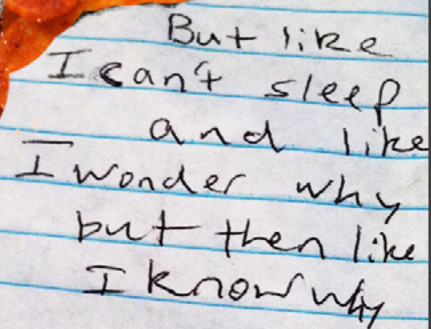 But like
I can't sleep
and like
I wonder why
but then like
I know why